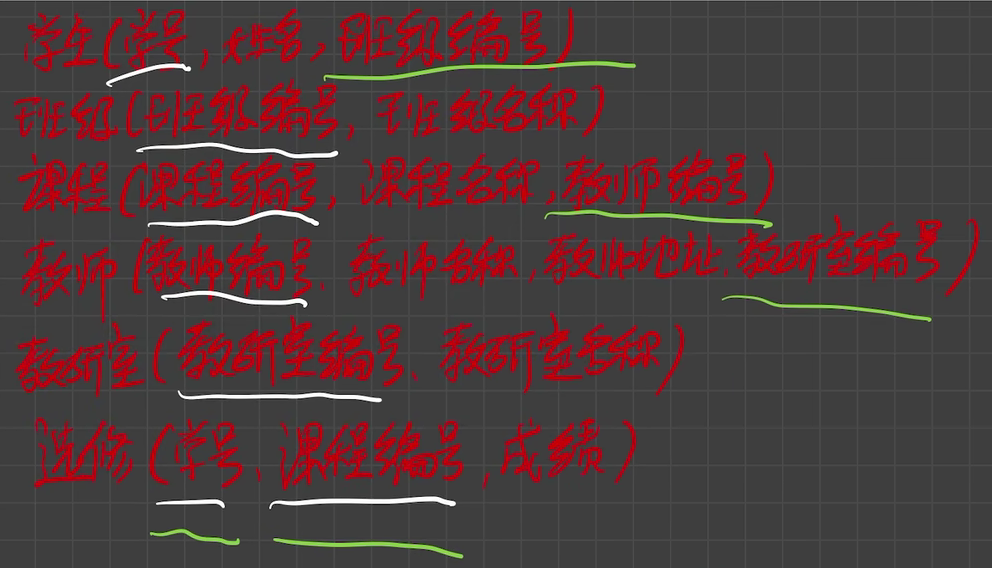 学生(学号,姓名,班级编号)
班级(班级编号,班级名称)
课程(课程编号,课程名称,教师编号)
教师(教师编号、教师名称,教师地址、教研室编号)
教研室(教研室编号、教研室名称)
选修(学号、课程编号,成绩)